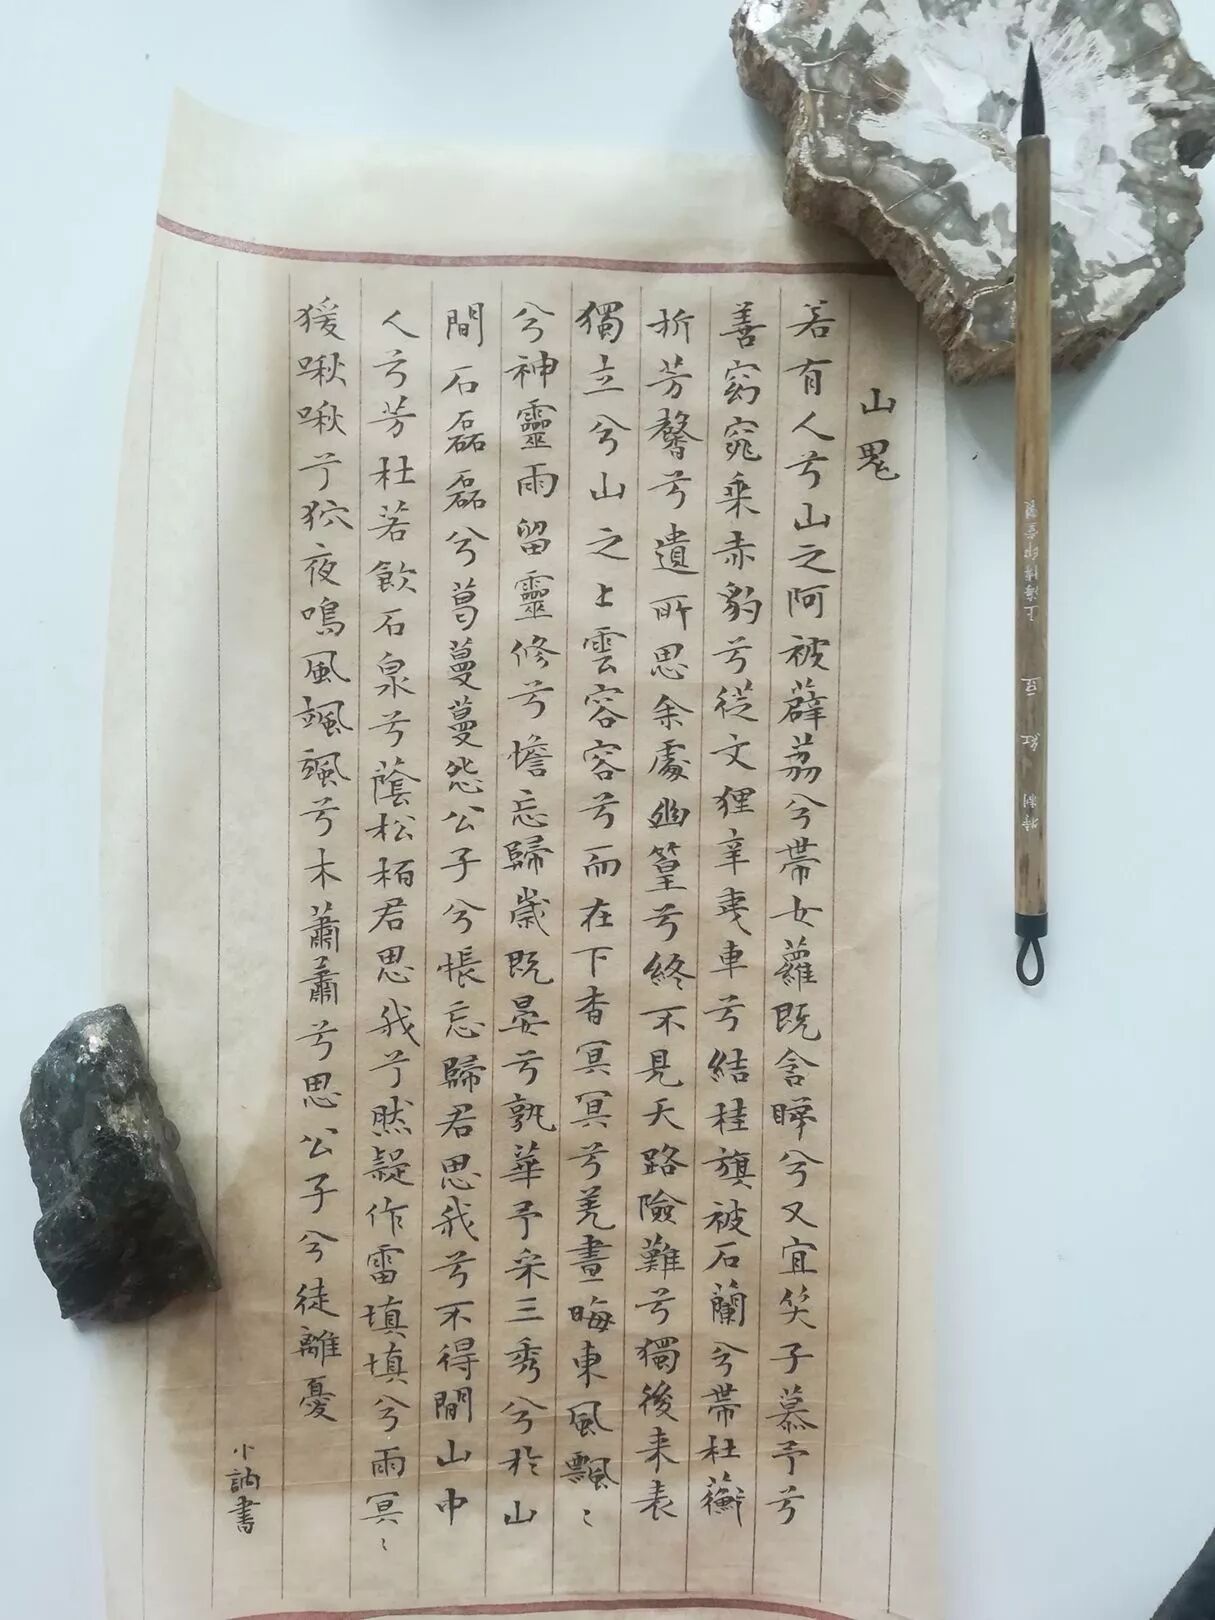 山鬼
若有人兮山之阿被薜荔兮帶女蘿既含睇兮又宜笑子慕予兮
善窈窕乘赤豹兮從文狸辛夷車兮結桂旗被石蘭兮帶杜蘅
折芳馨兮遺所思余處幽篁兮終不見天路險難兮獨後来表
獨立兮山之上雲容容兮而在下杳冥冥兮羌晝晦東風飄〻
兮神靈雨留靈修兮憺忘歸歲既晏兮孰華予采三秀兮於山
間石磊磊兮葛蔓蔓怨公子兮悵忘歸君思我兮不得間山中
人兮芳杜若飲石泉兮蔭松栢君思我兮然疑作雷填填兮雨冥〻
猨啾啾兮狖夜鳴風颯颯兮木蕭蕭兮思公子兮徒離憂
小訥書
特制 紅豆 上海